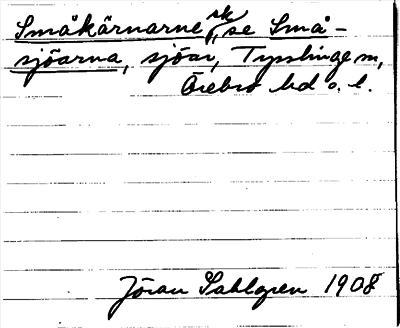 Småkärnarne, sk se Små-
sjöarna, sjöar, Tysslinge sn,
Örebro hd o. l.
Jöran Sahlgren 1908